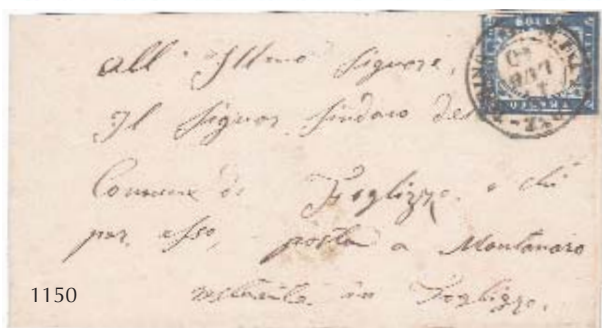 All' Illmo Signore,
Il Signor Sindaco del
Comune di Foglizzo e chi
per esso, posta a Montanaro
in Foglizzo.
1150
BOLLO
FRANCO
LUG
60